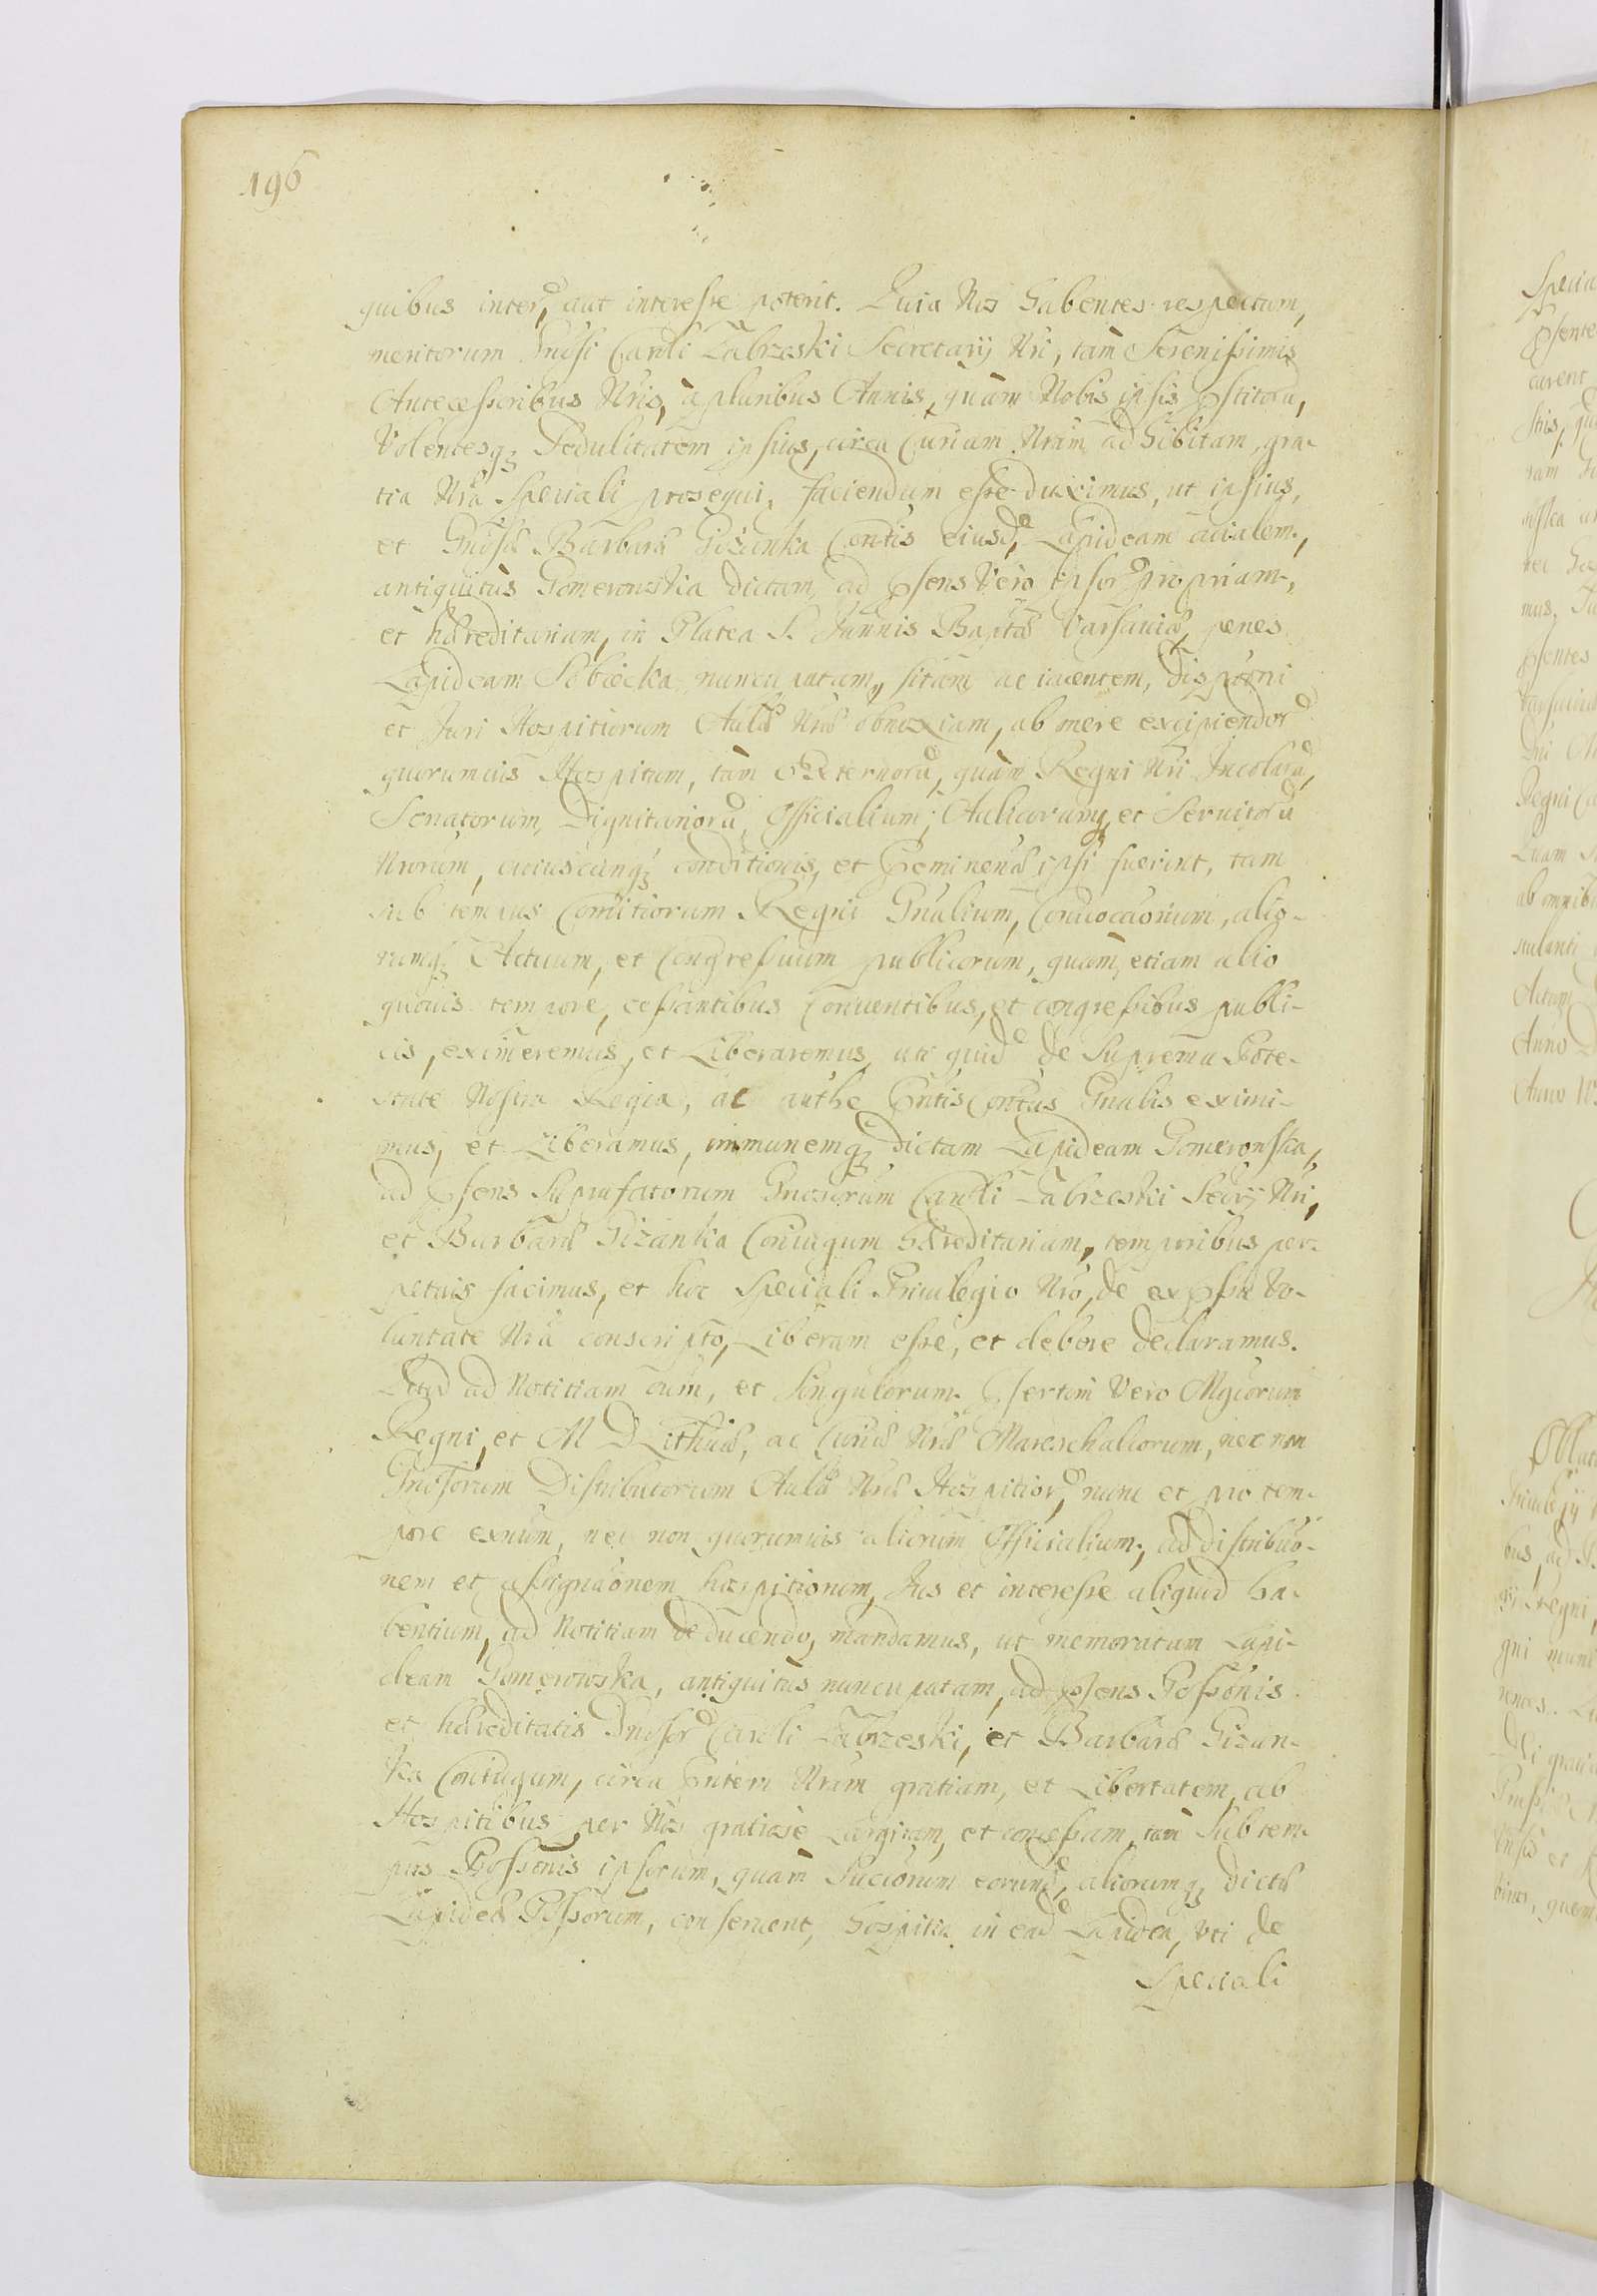 196
quibus interē, aut interesse poterit. Quia Nos habentes respectum,
meritorum Gnosi Caroli Zabrzeski Secretarij Nri, tam Serenissimis
Antecessoribus Nris, à pluribus Annis, quàm Nobis ipsis pstitorū,
Volentesq; Sedulitatem ipsius, circa Curiam Nram adhibitam, gra-
tia Nrā Speciali prosequi, faciendum esse duximus, ut ipsius,
et Gnosæ Barbaræ Gizanka Contis eiusd, Lapideam acialem,
antiquitùs Gomerowska dictam, ad psens Vero ipsor propriam,
et hæreditariam, in Platea S. Joannis Baptæ Varsaviæ, penes
Lapideam Sobiecka nuncupatam, sitam ac iacentem, disponi
et Juri Hospitiorum Aulæ Nræ obnoxiam, ab mere excipiendor
quorumuis Hospitum, tàm Externorū, quàm Regni Nri Incolarū,
Senatorum, Dignitariorū, Officialium, Aulicorumq, et Seruitorū
Nrorum, cuiuscunq; conditionis, et Pæminenæ ipsi fuerint, tam
sub tempus Comitiorum Regni Gnalium, Conuocaonum, alio-
rumq; Actuum, et Congressuum publicorum, quàm, etiam alio
quouis tempore, cessantibus Conuentibus, et congressibus publi-
cis, eximeremus, et Liberaremus, uti quid de Suprema Pote-
state Nostra Regia, ac authe Pntis Contus Gnalis eximi-
mus, et Liberamus, immunemq; dictam Lapideam Gomerowska,
ad psens Suprafatorum Gnosorum Caroli Zabrzeski Secrij Nri,
et Barbaræ Gizanka Coniugum hæreditariam, temporibus per-
petuis facimus, et hoc Speciali Priuilegio Nro, de expssa Vo-
luntate Nrā conscripto, Liberam esse, et debere declaramus.
Qtod ad Notitiam oum, et Singulorum. Psertim Vero Mgcorum
Regni, et M D Lithuæ, ac Curiæ Nræ Mareschalcorum, nec non
Gnosorum Distributorum Aulæ Nræ Hospitior, nunc et pro tem-
pore exnum, nec non quorumuis aliorum Officialium, ad distribuo-
nem et assignaonem hospitiorum, Jus et interesse aliquid ha-
bentium, ad Notitiam deducendo, mandamus, ut memoratam Lapi-
deam Gomerowska, antiquitùs nuncupatam, ad psens Possonis
et hæreditatis Gnosor Caroli Zabrzeski, et Barbaræ Gizan-
ka Coniugum, circa pntem Nram gratiam, et Libertatem, ab
Hospitibus per Nos gratiosè Largitam, et concessam, tam Sub tem-
pus Possonis ipsorum, quàm Succorum eorund, aliorumq; dictæ
Lapideæ Possorum, conseruent, hospitia in ead Lapidea, Vti de
Speciali